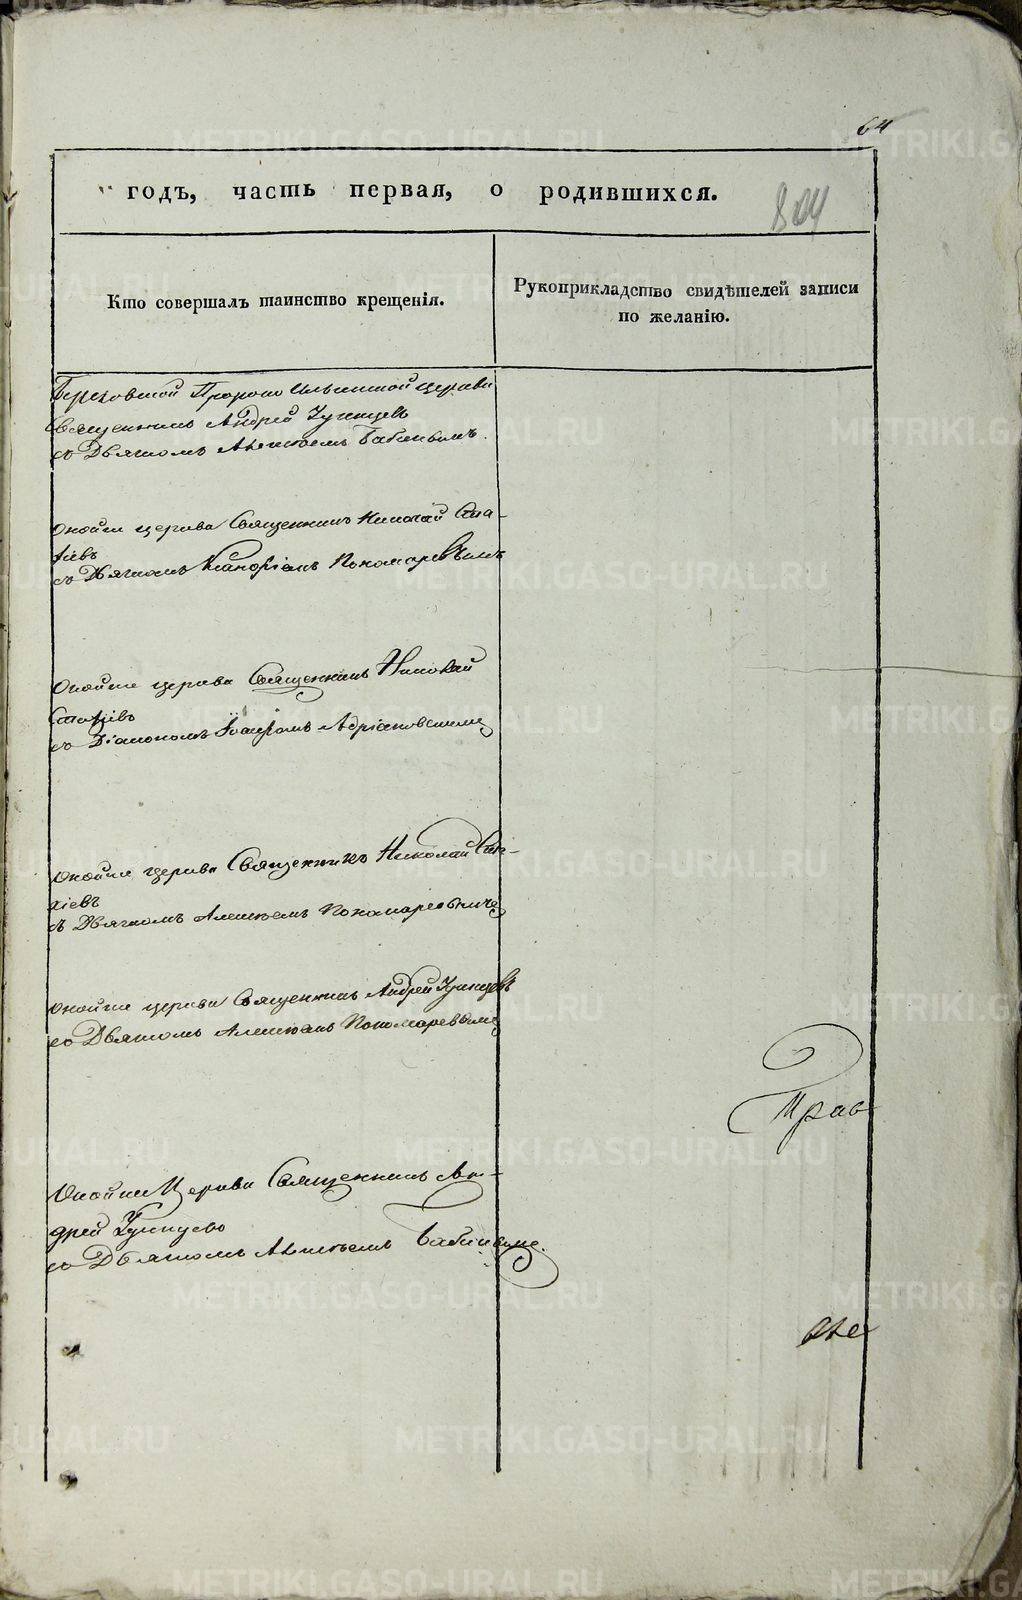 64
годъ, часть первая, о родившихся.
804
Кто совершалъ таинство крещенія.
Рукоприкладство свидѣтелей записи
по желанію.
Пророко Ильинской церкви
Священникъ Андрей
съ Дьячкомъ Алексѣемъ Бабинымъ.
Онойже церкви Священникъ Николай Ста-
хіевъ
съ Дьячкомъ Пономаревымъ
Онойже церкви Священникъ Николай
Стахіевъ
съ Діакономъ Адріановскимъ
Онойже церкви Священникъ Николай Ста-
хіевъ
съ Дьячкомъ Алексѣемъ Пономаревымъ
Онойже церкви Священникъ Андрей
съ Дьячкомъ Алексѣемъ Пономаревымъ
Онойже Церкви Священникъ Ан-
дрей
съ Дьячкомъ Алексѣемъ Бабинымъ.
METRIKI.GASO-URAL.RU